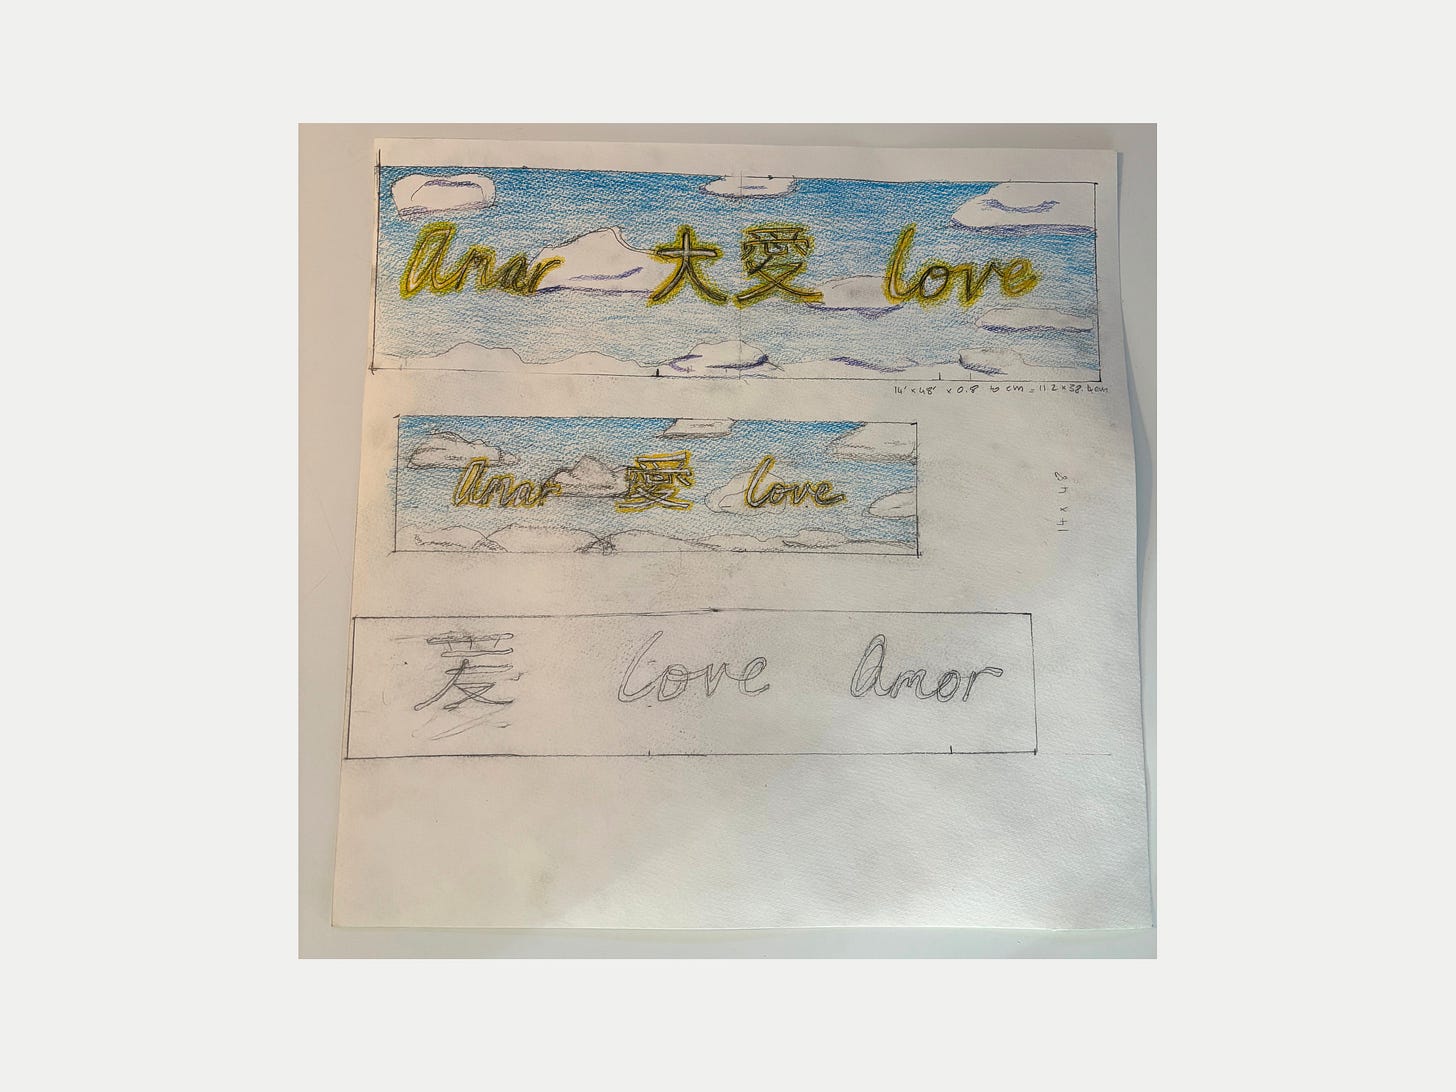 Amar 大愛 love
14' x 48' x 0.8 to cm = 11.2 x 38.4cm
Amar 愛 love
14 x 48
爱 love Amor